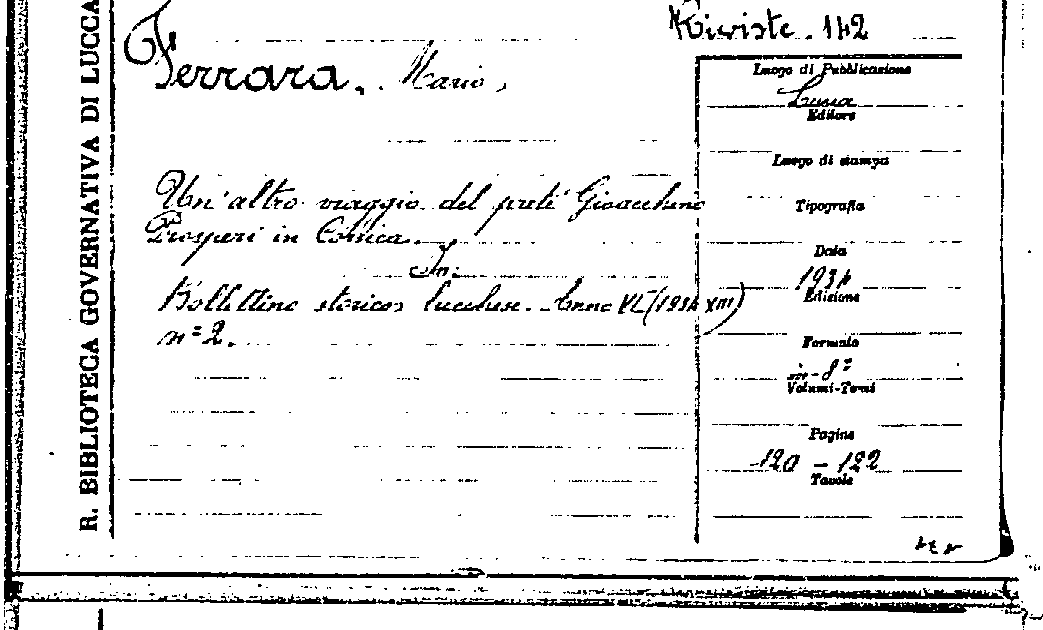 R. BIBLIOTECA GOVERNATIVA DI LUCCA
Riviste. 142
Ferrara, Mario,
Un'altro viaggio del prete Gioacchino
Prosperi in Corsica.
In:
Bollettino storico lucchese. Anno VI (1934 XIII)
n=2.
Luogo di Pubblicazione
Lucca
Editore
Luogo di stampa
Tipografia
Data
1934
Edizione
Formato
in-8°
Volumi-Tomi
Pagine
120 - 122
Tavole